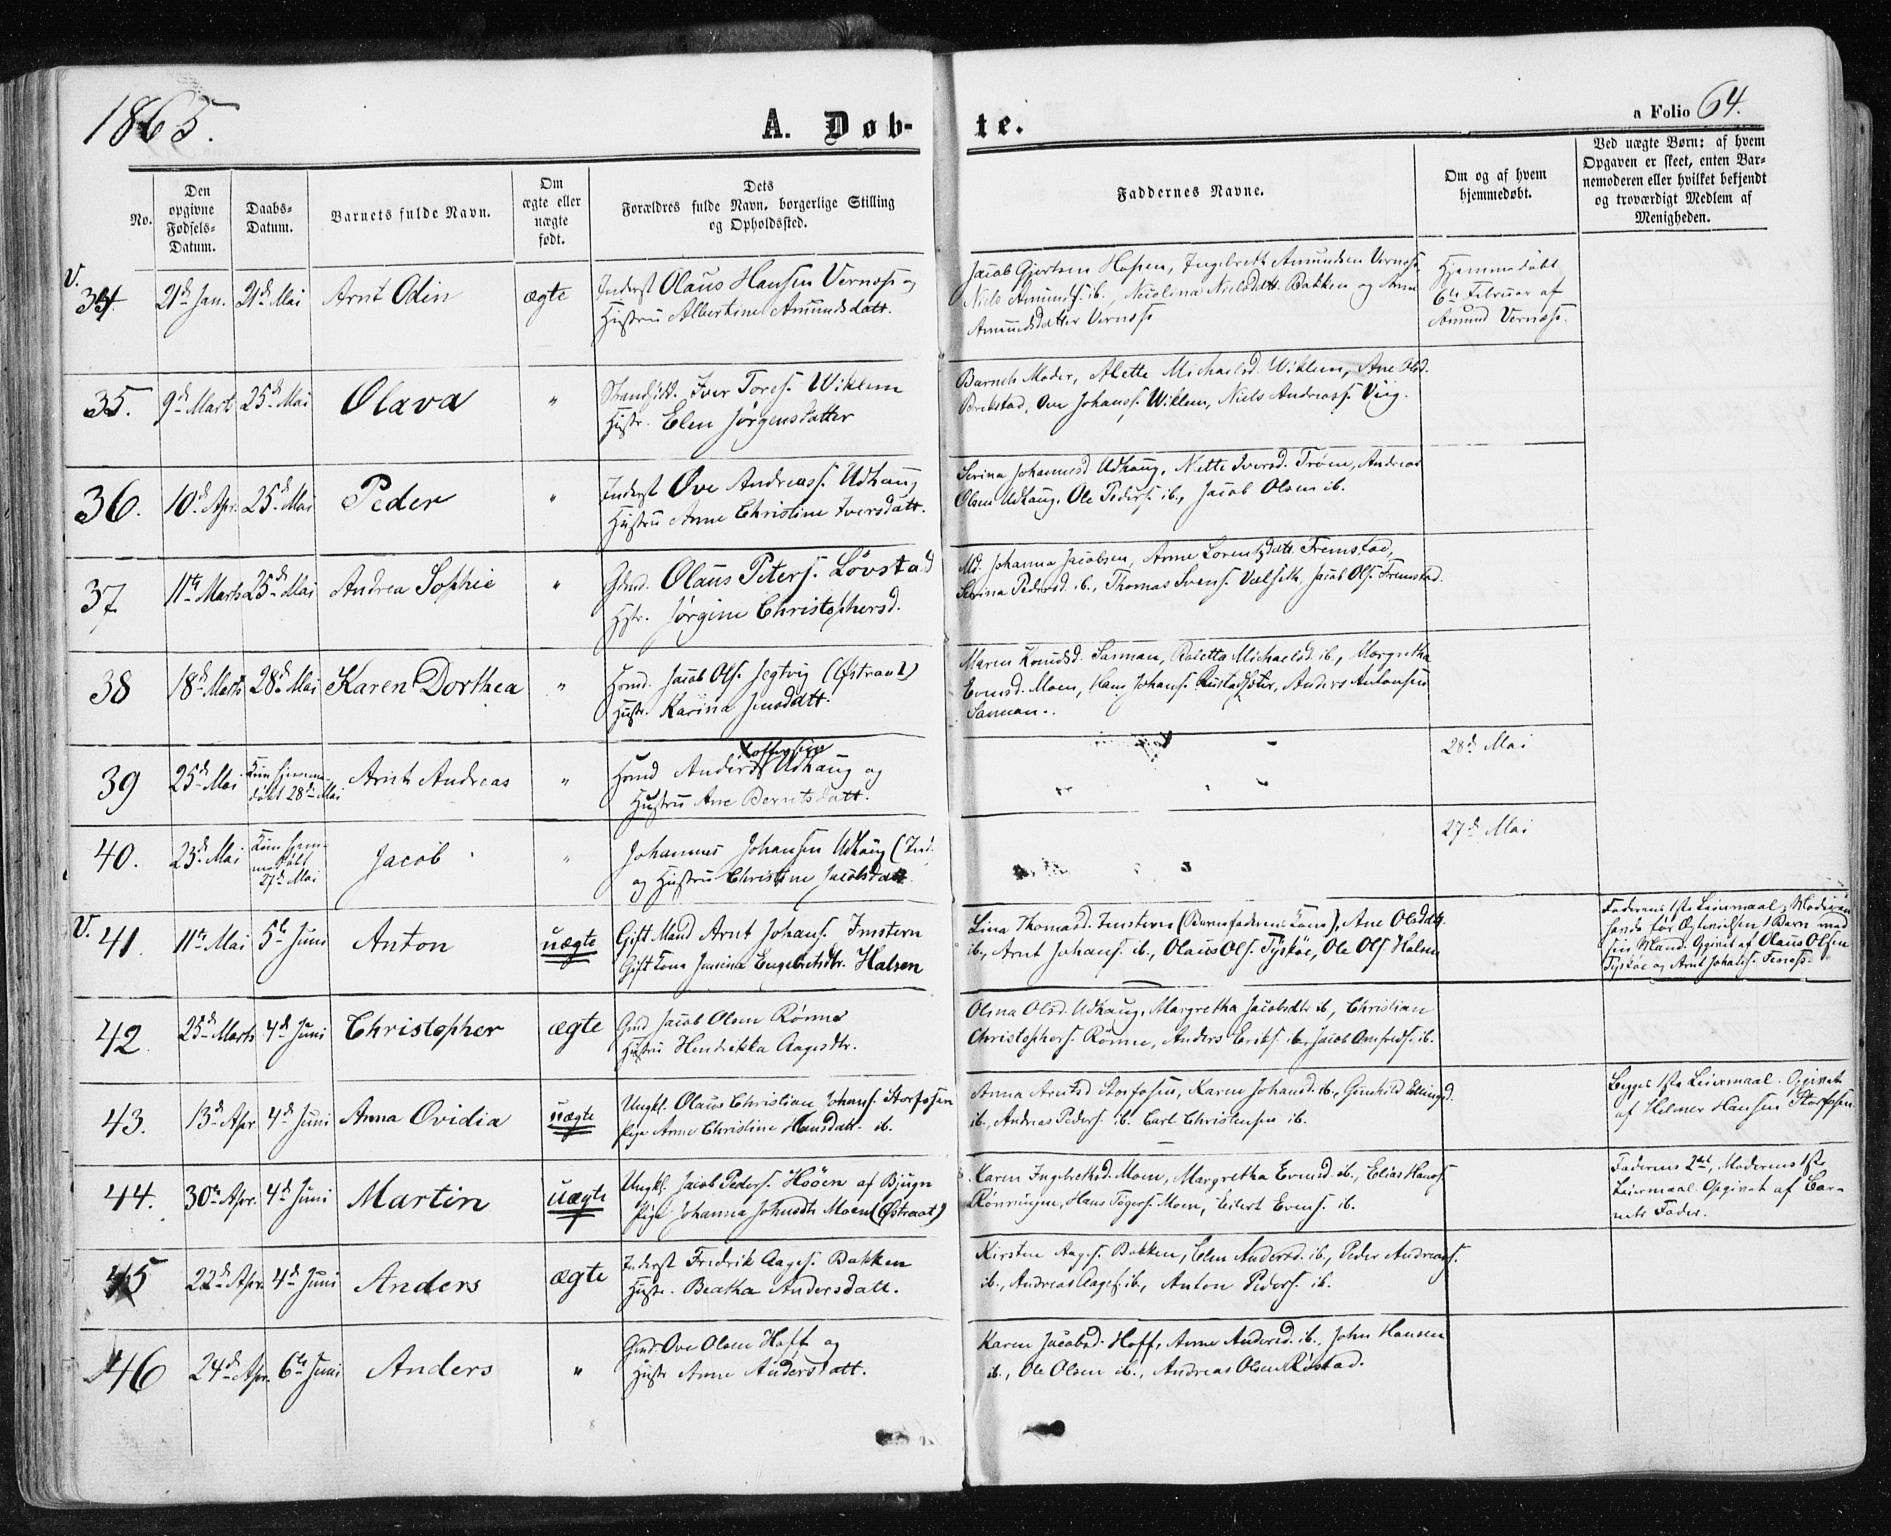 1865.
A. Døb-
te.
a Folio 64.
No.
Den
opgivne
Fødsels-
Datum.
Daabs-
Datum.
Barnets fulde Navn.
Om
ægte eller
uægte
født.
Dets
Forældres fulde Navn, borgerlige Stilling
og Opholdssted.
Faddernes Navne.
Om og af hvem
hjemmedøbt.
Ved uægte Børn: af hvem
Opgaven er skeet, enten Bar-
nemoderen eller hvilket bekjendt
og troværdigt Medlem af
Menigheden.
V.
34. 21de Jan. 21de Mai Arnt Odin ægte
Inderst Olaus Hansen Vernæs og
Hustru Albertine Amundsdatt.
Jacob Gjertsen Hopen, Ingebreth Amundsen Vernæs
Niels Amunds. ib., Nicolina Nielsdatt. Bakken og Anne
Amundsdatter Vernæs
Hjemmedøbt
6te Februar af
Amund Vernæs.
35. 9de Marts 25de Mai Olava "
Strandsidd. Iver Tores. Wiklem
Hustr. Elen Jørgensdatter
Barnets Moder, Alette Michaelsd. Wiklem, Ane Olsd.
Brekstad, Ove Johans. Wiklem, Niels Andreass. Viig.
36. 10de Apr. 25de Mai Peder "
Inderst Ove Andreass. Udhaug
Hustru Anne Christine Iversdatt.
Serina Johannesd. Udhaug, Nette Iversd. Trøen, Andreas
Olsen Udhaug, Ole Peders. ib., Jacob Olsen ib.
37 11te Marts 25de Mai Andrea Sophie "
Gbmd. Olaus Peters. Løvstad
Hstr. Jørgine Christophersd.
Md. Johanna Jacobsen, Anne Lorentsdatt. Fremstad,
Serina Pedersd. ib., Thomas Svens. Valseth, Jacob Ols. Fremstad.
38 18de Marts 28de Mai Karen Dorthea "
Hmd. Jacob Ols. Jegtvig (Østraat)
Hustr. Karina Jensdatt.
Maren Knudsd. Sannan, Michaelsd. ib., Margretha
Evensd. Moen, Hans Johans. Anders Antonsen
Sannan.
39 25de Mai Kun hjemme-
døbt 28de Mai Arnt Andreas "
Hmd Anders Udhaug og
Hustru Ane Berntsdatt.
28de Mai
40. 23de Mai Kun hjem-
medøbt
27de Mai Jacob "
Johannes Johansen Udhaug (Ind.
og Hustru Christine Jacobsdatt.
27de Mai
V.
41. 11te Mai 5te Juni Anton uægte
Gift Mand Arnt Johans. Imstern
Gift Kone Jensina Engebretsdtr. Halsen
Lina Thomasd. Imstern (Barnefaderens Kone), Ane Olsdatt.
ib., Arnt Johans. ib., Olaus Ols. Tyskøe, Ole Ols. Halsen
Faderens 1ste Leiermaal; Moderen
havde før 1 Barn med
sin Mand. Opgivet af Olaus Olsen
Tyskøe og Arnt Johans.
42. 25de Marts 4de Juni Christopher ægte
Gmd Jacob Olsen Rønne
Hustru Hendrikka Aagesdtr.
Olina Olsd. Udhaug, Margretha Jacobsdtr. ib, Christian
Christophers. Rønne, Anders Eriks. ib, Jacob ib.
43. 13de Apr. 4de Juni Anna Ovidia uægte
Ungkl. Olaus Christian Johans. Storfosen
Pige Anne Christine Hansdatt. ib.
Anna Arntsd. Storfosen, Karen Johansd. ib., Gunhild Ellingsd.
ib., Andreas Peders. ib. Carl Christensen ib.
Begges 1ste Leiermaal. Opgivet
af Helmer Hansen Storfosen
44. 30te Apr. 4de Juni Martin uægte
Ungkl. Jacob Peders. Høøen af Bjugn
Pige Johanna Johnsdtr. Moen (Østraat)
Karen Ingebrethsd. Moen, Margretha Evensd. ib., Elias Hans.
Rønningen, Hans Tøgers. Moen, Eilert Evens. ib.
Faderens 2det, Moderens 1ste
Leiermaal. Opgivet af Bar-
nets Fader.
45 22de Apr. 4de Juni Anders ægte
Inderst Fredrik Aages. Bakken
Hustr. Beatha Andersdatt.
Kirsten Aages. Bakken, Elen Andersd. ib., Peder Andreass.
ib., Andreas Aages. ib., Anton Peders. ib.
46 24de Apr. 6te Juni Anders "
Gmd. Ove Olsen Hoff og
Hustr. Anne Andersdatt.
Karen Jacobsd. Hoff, Anne Andersd. ib., John Hansen
ib., Ole Olsen ib., Andreas Olsen Ristad.